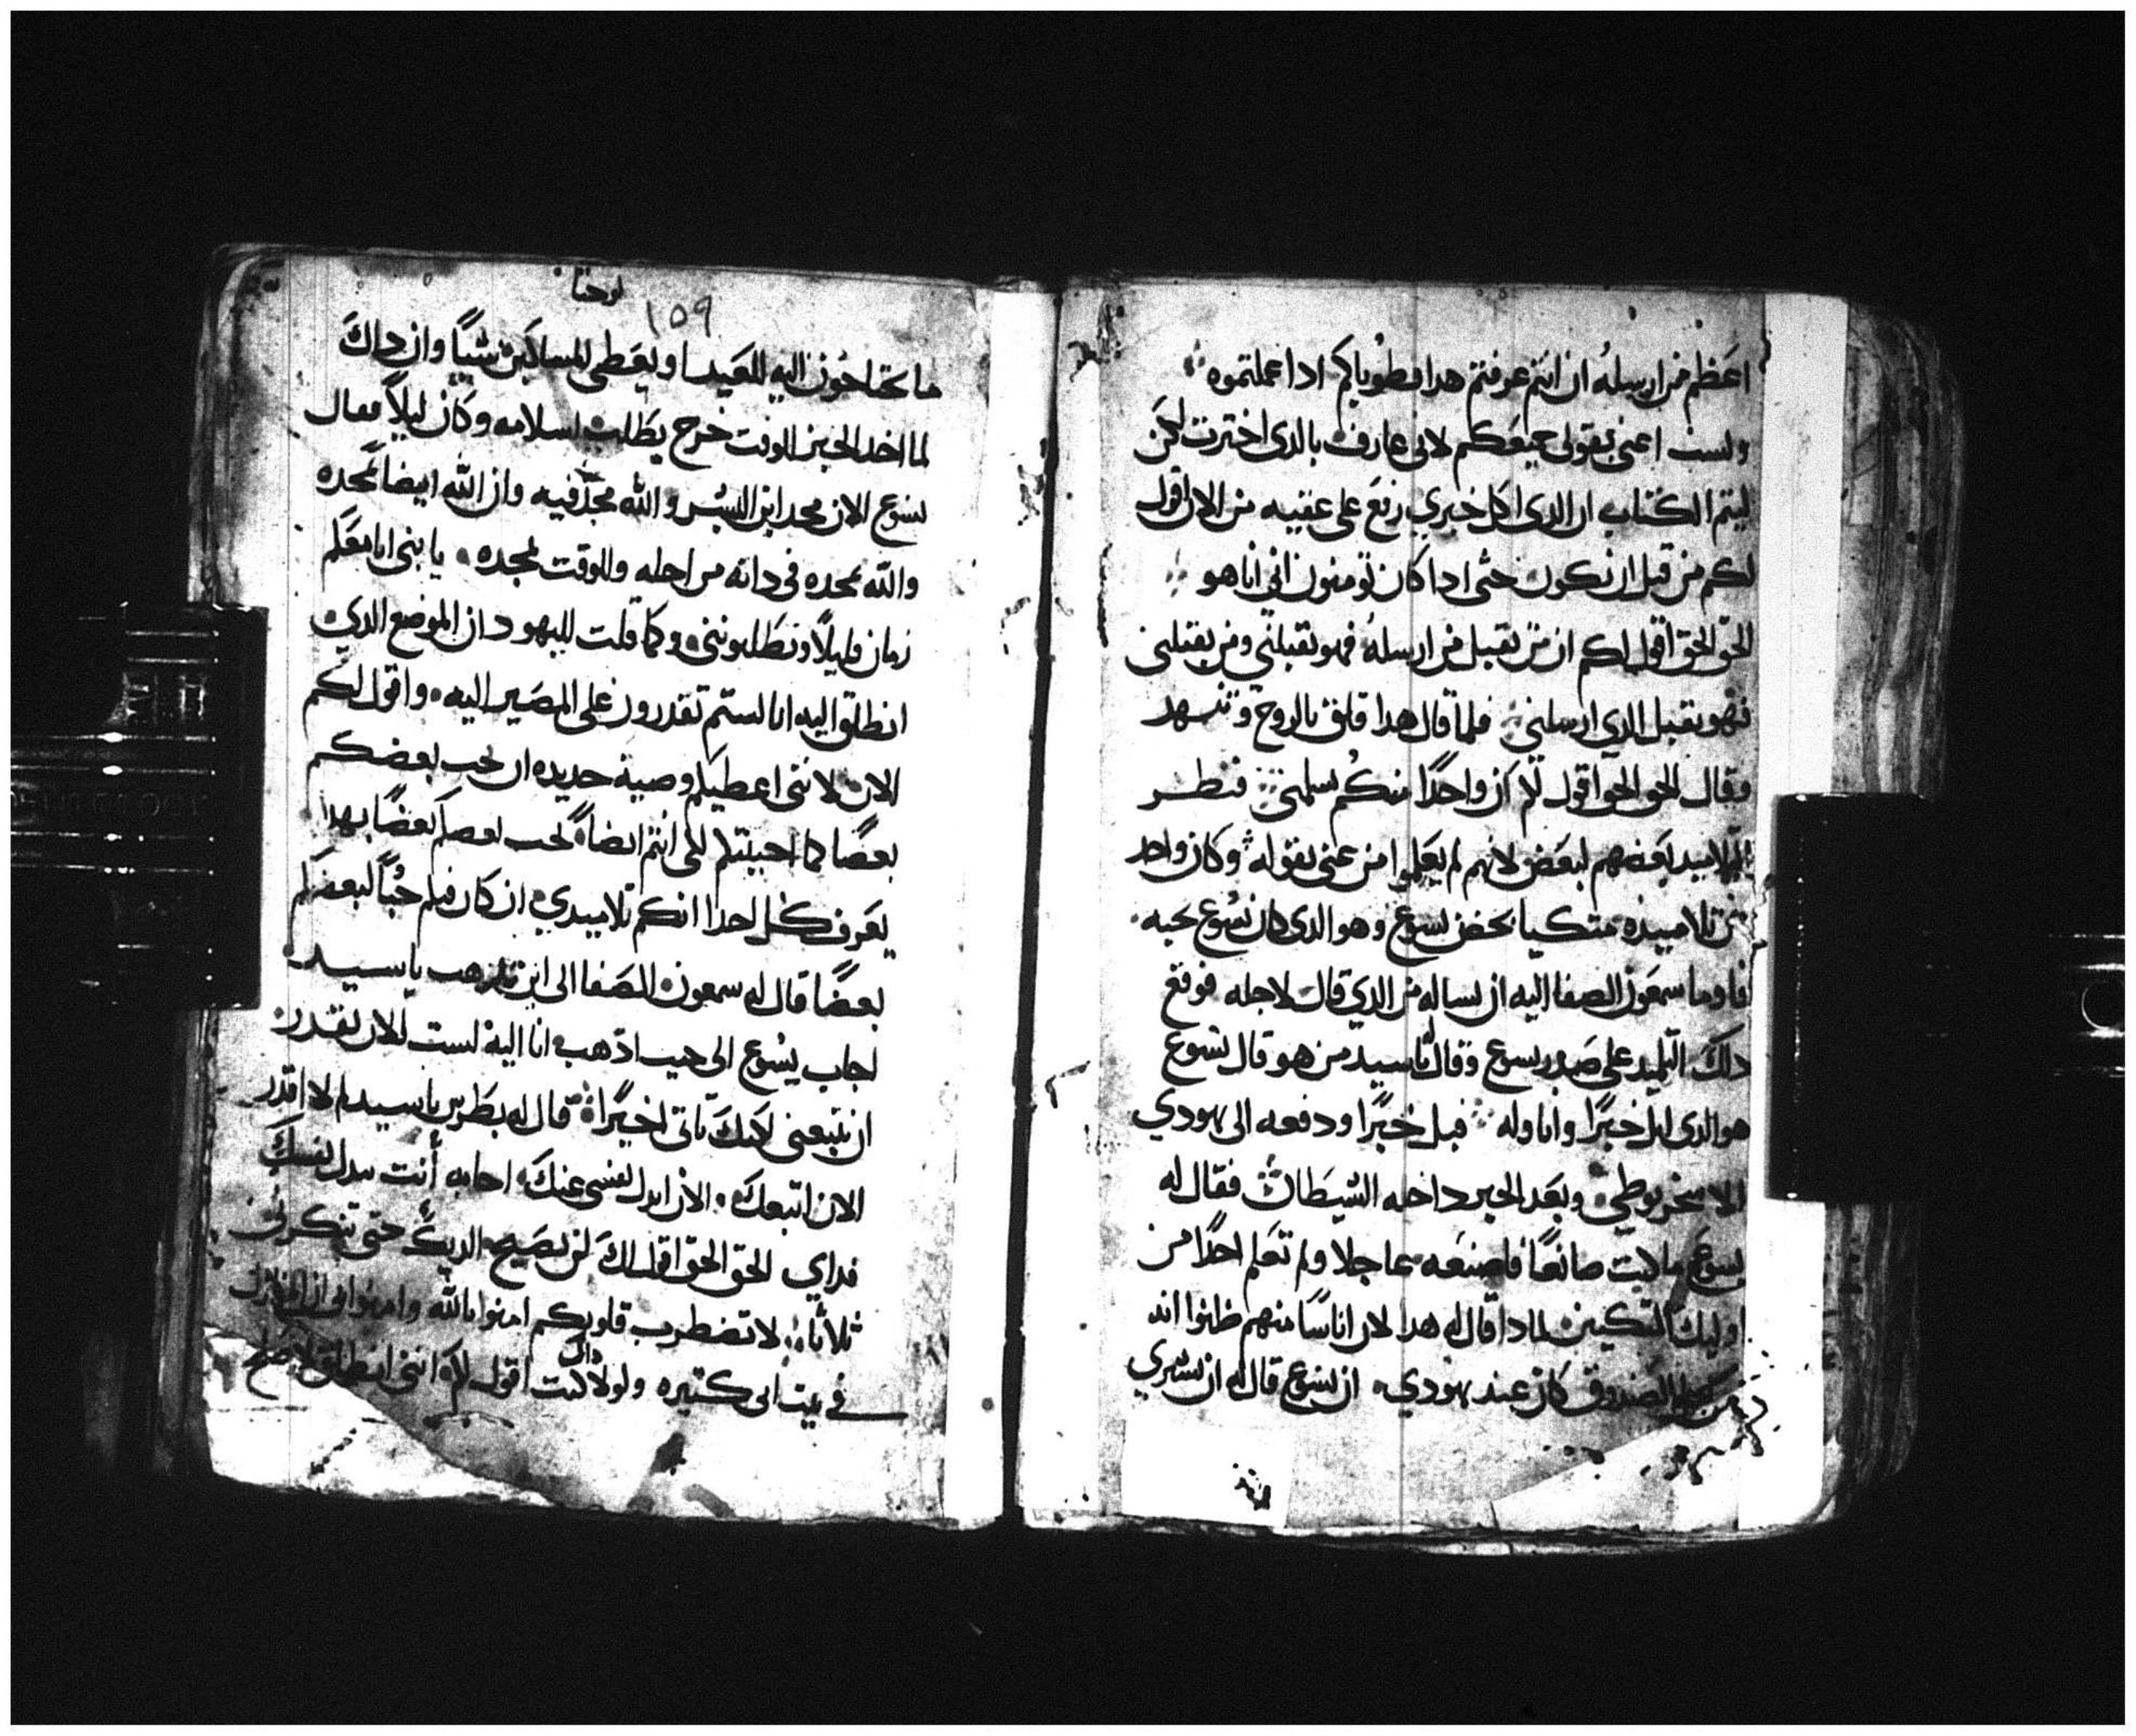 اعظم من ارسله ان انتم عرفتم هدا فطوباكم ادا عملتموه
ولست اعنى بقولى جميعكم لانى عارف بالدى اخترت لكن
ليتم الكتاب ان الدى اكل خبزي رفع على عقبيه من الان اقول
لكم من قبل ان تكون حتى ادا كان تومنون انى انا هو
الحق الحق اقول لكم ان من يقبل من ارسله فهو يقبلني ومن يقبلني
فهو يقبل الدي ارسلني فلما قال هدا قلق بالروح وتنهد
وقال الحق الحق اقول لكم ان واحدًا منكم يسلمني فنظر
التلاميد بعضهم لبعض لانهم لم يعلموا من عنى بقوله وكان واحد
من تلاميده متكيا بحضن يسوع وهو الدى كان يسوع يحبه
فاوما سمعون الصفا اليه ان يساله من الدي قال لاجله فوقع
دلك التلميد على صدر يسوع وقال له ياسيد من هو قال يسوع
هو الدى ابل خبزًا واناوله فبل خبزًا ودفعه الى يهودي
الاسخريوطي وبعد الخبز داخله الشيطان فقال له
يسوع ما كنت صانعًا فاصنعه عاجلا ولم تعلم احدًا من
اوليك المتكيين لمادا قال له هدا لان اناسًا منهم ظنوا انه
الصندوق كان عند يهودي ان يسوع قال له ان يشري
يوحنا
١٥٩
ما يحتاجون اليه للعيد او يعطى للمساكين شيًا وان داك
لما اخد الخبز للوقت خرج يطلب اسلامه وكان ليلاً فقال
يسوع الان مجد ابن البشر والله مجد فيه وان الله ايضاً يمجده
والله يمجده فى داته من اجله وللوقت يمجده يا بني انا معكم
زمان قليلاً وتطلبونني وكما قلت لليهود ان الموضع الدي
انطلق اليه انا لستم تقدرون على المصير اليه واقول لكم
الان لانني اعطيكم وصية جديده ان يحب بعضكم
بعضًا كما احببتكم لكي انتم ايضاً يحب بعضكم بعضًا بهدا
يعرف كل احدا انكم تلاميدي ان كان فيكم حُبًا لبعضكم
بعضًا قال له سمعون الصفا الى اين تدهب ياسيد
اجاب يسوع الى حيث ادهب انا اليه لست الان تقدر
ان تتبعني لكنك تاتى اخيرًا قال له بطرس ياسيد لم لا اقدر
الان اتبعك والان ابدل نفسى عنك اجابه أنت تبدل نفسك
فداي الحق الحق اقل لك لن يصيح الديك حتى تنكرني
ثلاثًا لا تضطرب قلوبكم امنوا بالله وامنوا بى ان المنازل
في بيت ابى كتيره ولولا داك كنت اقول لكم اننى انطلق لاصلح